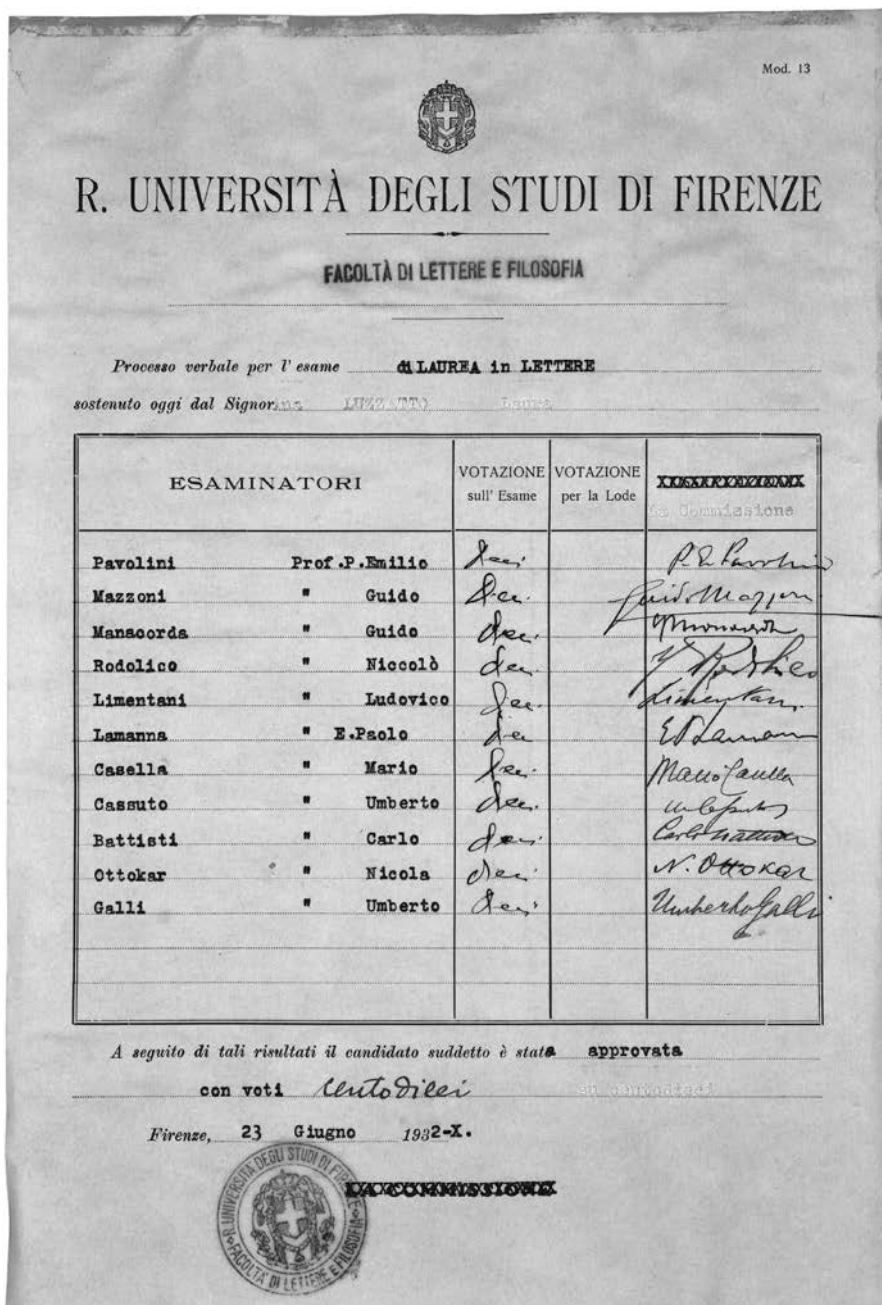 Mod. 13
R. UNIVERSITÀ DEGLI STUDI DI FIRENZE
FACOLTÀ DI LETTERE E FILOSOFIA
Processo verbale per l' esame di LAUREA in LETTERE
sostenuto oggi dal Signorina LUZZATTO Laura
ESAMINATORI VOTAZIONE sull' Esame VOTAZIONE per la Lode La Commissione
Pavolini Prof.P.Emilio dieci P. E. Pavolini
Mazzoni " Guido dieci Guido Mazzoni
Manacorda " Guido dieci
Rodolico " Niccolò dieci N. Rodolico
Limentani " Ludovico dieci Limentani
Lamanna " E.Paolo dieci EPLamanna
Casella " Mario dieci Mario Casella
Cassuto " Umberto dieci
Battisti " Carlo dieci Carlo Battisti
Ottokar " Nicola dieci N. Ottokar
Galli " Umberto dieci Umberto Galli
A seguito di tali risultati il candidato suddetto è stata approvata
con voti centodieci su centodieci
Firenze, 23 Giugno 1932-X.
LA COMMISSIONE
R. UNIVERSITÀ DEGLI STUDI DI FIRENZE
FACOLTÀ DI LETTERE E FILOSOFIA